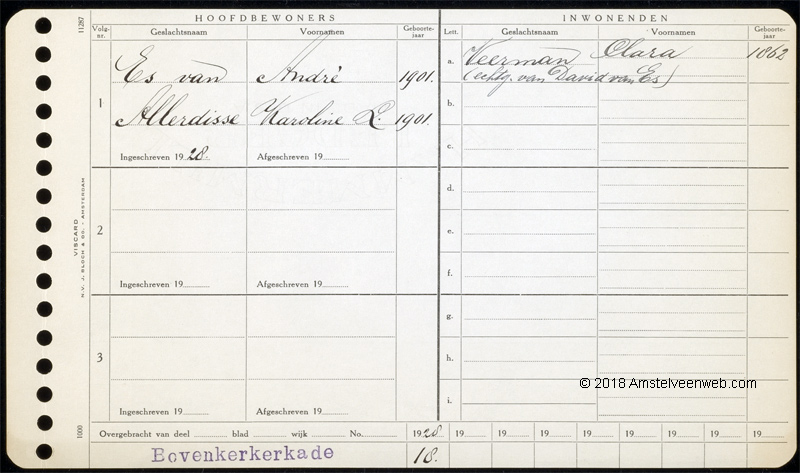 HOOFDBEWONERS
INWONENDEN
11287
Volg-nr.
Geslachtsnaam
Voornamen
Geboorte-jaar
Lett.
Geslachtsnaam
Voornamen
Geboorte-jaar
1
Es van André 1901.
Allerdisse Karoline L. 1901.
Ingeschreven 1928.
Afgeschreven 19
a. Veerman Clara 1862
(echtg. van David van Es)
b.
c.
2
Ingeschreven 19
Afgeschreven 19
d.
e.
f.
3
Ingeschreven 19
Afgeschreven 19
g.
h.
i.
VISCARD
N.V. J. BLOCH & CO. - AMSTERDAM
1000
© 2018 Amstelveenweb.com
Overgebracht van deel blad wijk No. 1928 19 19 19 19 19 19 19 19
Bovenkerkerkade 18.